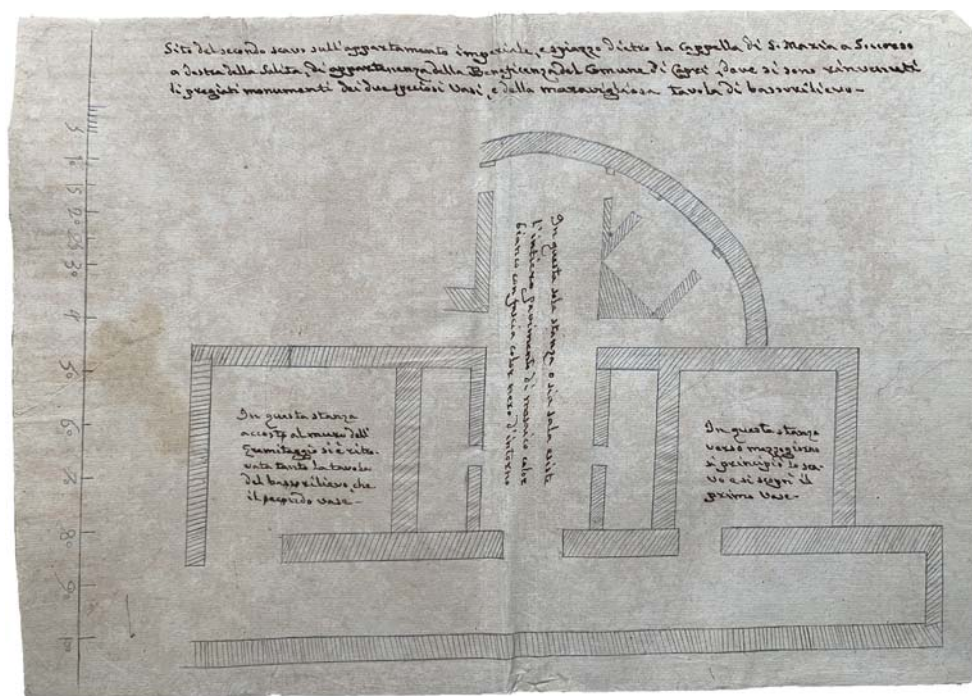 Sito del secondo scavo sull'appartamento imperiale, e spiazzo dietro la Cappella di S. Maria a Soccorso
a destra della Salita, di appartenenza della Beneficenza del Comune di Capri, dove si sono rinvenuti
li pregiati monumenti dei due speciosi Vasi, e della maravigliosa tavola di bassorilievo-
In questa sola stanza o sia sala esiste
l'intiero pavimento di mosaico color
bianco con fascia color nero d'intorno
In questa stanza
accosto al muro dell'
Eremitaggio si è rito-
vata tanto la tavola
del bassorilievo, che
il secondo vase-
In questa stanza
verso mezzogiorno
si principiò lo sca-
vo e si scoprì il
primo Vase-
5
10
15
20
25
30
4
50
60
70
80
90